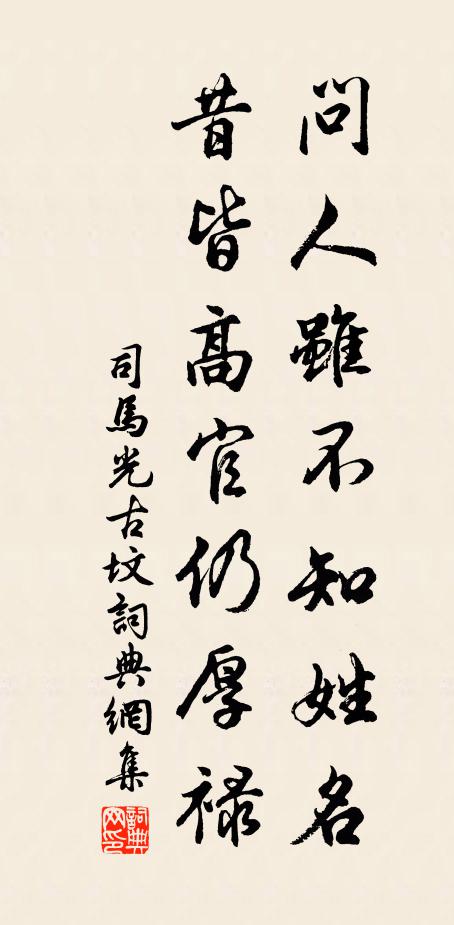 問人雖不知姓名
昔皆高官仍厚祿
司馬光古坟詞典網集
詞典网印